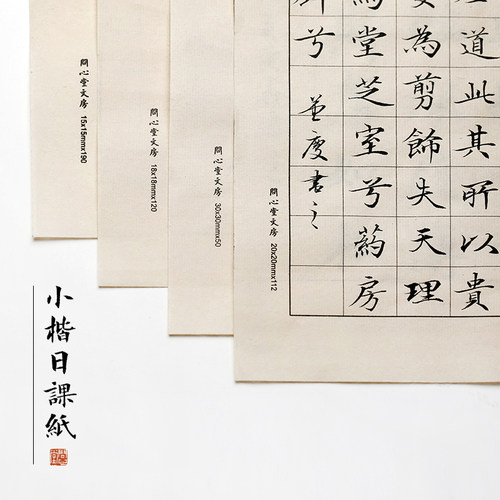 道此其所以貴
為剪飾失天理
堂芝室兮葯房
兮
書之
問心堂文房 20x20mmx112
問心堂文房 30x30mmx50
問心堂文房 18x18mmx120
問心堂文房 15x15mmx190
小楷日課紙